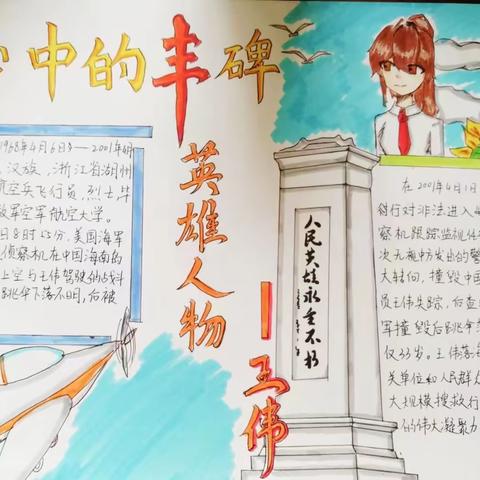 中的丰碑
英雄人物
—王伟
1968年4月6日—2001年4月
汉族，浙江省湖州
航空兵飞行员，烈士毕
放军空军航空大学。
日8时55分，美国海军
侦察机在中国海南的
上空与王伟驾驶的战斗
跳伞下落不明，后被
人民英雄永垂不朽
在2001年4月1日
对行对非法进入
察机跟踪监视任
次无视中方发出的警
大转向，撞毁中国
员王伟失踪，后查
军撞毁后跳伞
仅33岁。王伟落
关单位和人民群众
大规模搜救行
的伟大凝聚力